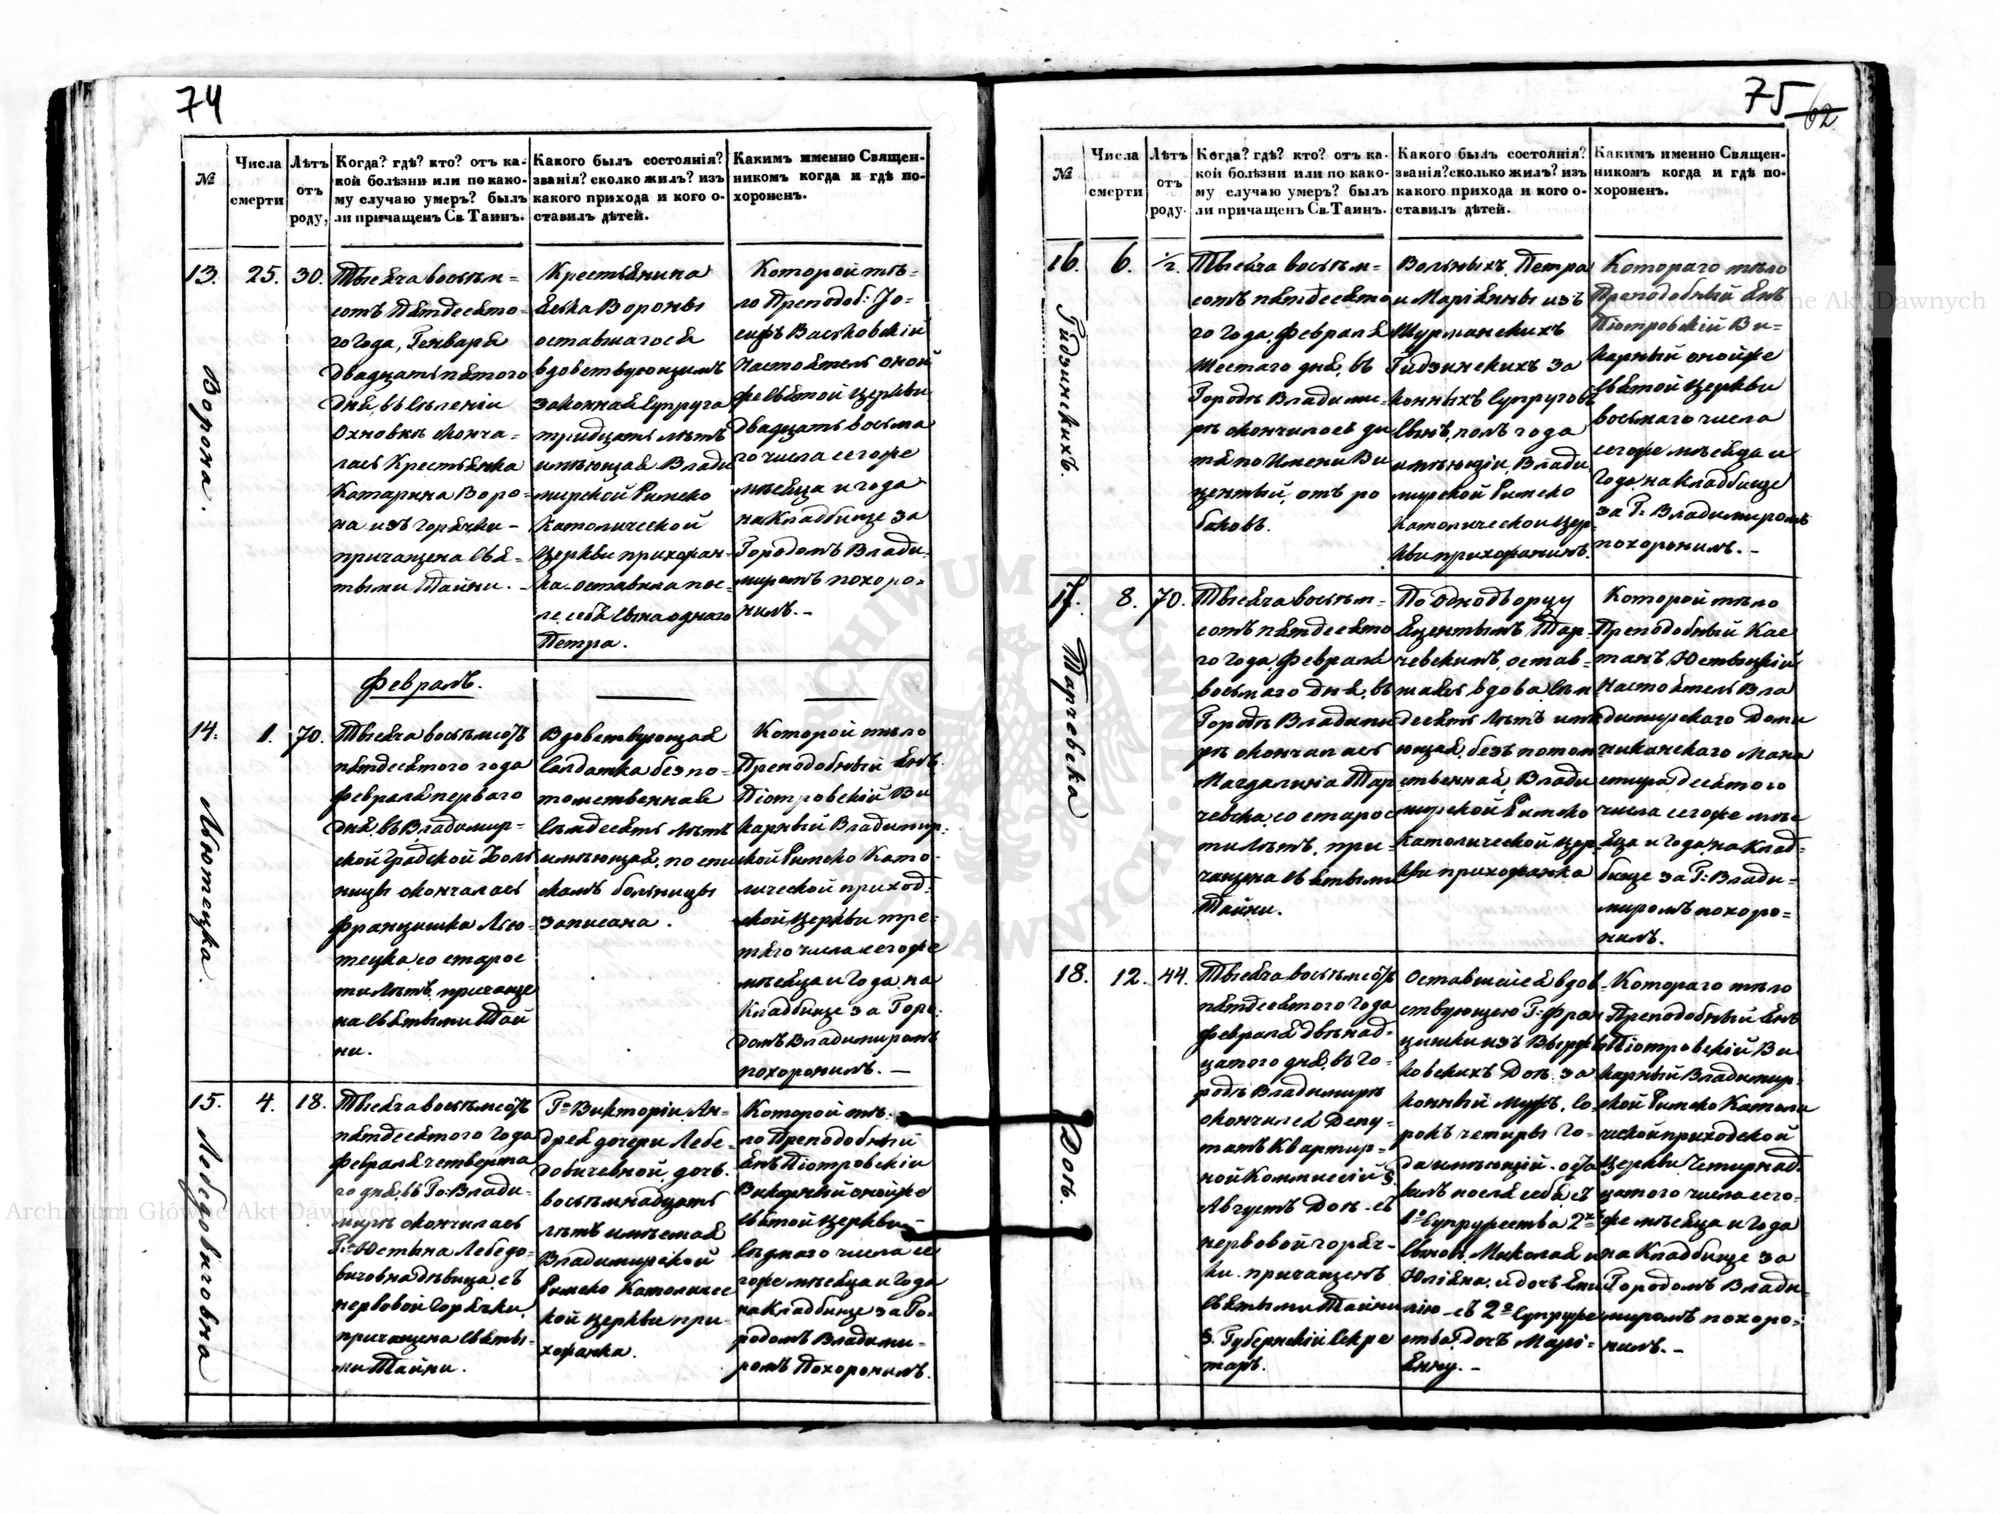 74
№
Числа
смерти
Лѣтъ
отъ
роду,
Когда? гдѣ? кто? отъ ка-
кой болѣзни или по како-
му случаю умеръ? былъ
ли причащенъ Св. Таинъ.
Какого былъ состоянія?
званія? сколко жилъ? изъ
какого прихода и кого о-
ставилъ дѣтей.
Какимъ именно Священ-
никомъ когда и гдѣ по-
хороненъ.
13.
25.
30.
Ворона.
Тысяча восемь-
сотъ пятдесято-
го Года, Генваря
двадцать пятого
дня, въ селеніи
Охновкѣ сконча-
лась Крестьянка
Катарина Воро-
на изъ горячки -
причащена Свя-
тыми Тайни. -
Крестьянина
Яська Вороны
оставшагося
вдовствующимъ
законная супруга
тридцать лѣтъ
имѣющая Влади
мирской Римско
Католической
Церкви прихожан-
ка - оставила пос-
ле себя сына одного
Петра.
Которой тѣ-
ло Преподоб: Іо-
сифъ Васьковскій
Настоятель оной
же святой Церкви
двадцать восьма
го числа сегоже
мѣсяца и года
на Кладбище за
Городомъ Влади-
миромъ похоро-
нилъ. -
Февраль.
14.
1.
70.
Лютецка.
Тысяча восемьсотъ
пятдесятого года
февраля первого
дня, въ Владимир-
ской Градской Боль
ницы скончалась
Францишка Лю-
тецка, со старос
ти лѣтъ, причаще
на святыми Тай
ни.
Вдовствующая
Солдатка безпо-
томственная
семдесятъ лѣтъ
имѣющая, по спи
скамъ больницы
записана.
Которой тѣло
Преподобный Янъ
Піотровскій Ви
карный Владимир-
ской Римско Като-
лической приход-
ской Церкви тре-
тяго числа сегоже
мѣсяца и Года, на
Кладбище за Горо-
домъ Владимиромъ
похоронилъ. -
15.
4.
18.
Лебедовичовна
Тысяча восемьсотъ
пятдесятого Года
февраля четверта
го дня, въ Го: Влади-
мирѣ скончилась
Г: Юстина Лебедо-
вичовна дѣвица, съ
нервовой Горячки,
причащена святы-
ми Тайни.
Г: Викторіи Ан-
дрея дочери Лебе-
довичевной, дочь
восемнадцать
лѣтъ имѣемая
Владимирской
Римско Католичес
кой Церкви при-
хожанка.
Которой тѣ-
ло Преподобный
Янъ Піотровскій
Викарный онойже
святой Церкви
седмаго числа се
гоже мѣсяца и Года
на Кладбище за Го-
родомъ Владими-
ромъ похоронилъ.
75
62
№
Числа
смерти
Лѣтъ
отъ
роду.
Когда? гдѣ? кто? отъ ка-
кой болѣзни или по како-
му случаю умеръ? былъ
ли причащенъ Св. Таинъ.
Какого былъ состоянія?
званія? сколько жилъ? изъ
какого прихода и кого о-
ставилъ дѣтей.
Какимъ именно Священ-
никомъ когда и гдѣ по-
хороненъ.
16.
6.
½.
Гидзинскихъ.
Тысяча восемь-
сотъ пятдесято
го Года, февраля
шестаго дня, въ
Городѣ Владими-
рѣ скончилось ди
тя по имени Ви
центый, отъ ро
баковъ.
Вольныхъ Петра
и Маріянны изъ
Шурманскихъ
Гидзинскихъ за
конныхъ супруговъ
сынъ, полъ года
имѣющій, Влади
мирской Римско
католической Цер-
кви прихожанинъ.
Котораго тѣло
Преподобный Янъ
Піотровскій Ви-
карный онойже
святой Церкви
восьмаго числа
сегоже мѣсяца и
Года на Кладбище
за Г: Владимиромъ
похоронилъ. -
17.
8.
70.
Тарчевска
Тысяча восемь-
сотъ пятдесято
го Года, февраля
восьмаго дня, въ
Городѣ Владими
рѣ скончалась
Магдалина Тар
чевска, со старос
ти лѣтъ, при-
чащена святыми
Тайни.
По Однодворцу
Яцентымъ Тар-
чевскимъ, остав-
шаясь вдова сем
десять лѣтъ имѣ
ющая, безъ потом
ственная, Влади
мирской Римско
Католической Цер-
кви прихожанка
Которой тѣло
Преподобный Кас
танъ Юствицкій
Настоятель Вла
димирского Доми
никанского Мана
стыра десятого
числа сегоже мѣс
яца и Года на Клад-
бище за Г: Влади-
миромъ похоро-
нилъ.
18.
12.
44.
Доть.
Тысяча восемьсотъ
пятдесятого Года
февраля двѣнад-
цатого дня, въ Го-
родѣ Владимирѣ
скончился Депу-
татъ Квартир-
ной Коммиссій §
Августъ Доть - съ
нервовой горяч-
ки - причащенъ
святыми Тайни
§. Губернскій Секре
таръ.
Оставшійся вдов-
ствующею Г: Фран
цишки изъ Вырж
ковскихъ Доть за
конный мужъ, со-
рокъ четыры Го-
да имѣющій - оста
вилъ после себя съ
1º Супружества 2хъ
сыновъ Миколая и
Юліяна, и дочь Еми
лію - съ 2º Супруже
ства Дочь Марі-
янну. -
Котораго тѣло
Преподобный Янъ
Піотровскій Ви
карный Владимир-
ской Римско Катали
ческой приходской
Церкви четырнад-
цатого числа сего-
же мѣсяца и Года
на Кладбище за
Городомъ Влади-
миромъ похоро-
нилъ. -
Archiwum Główne Akt Dawnych
Archiwum Główne Akt Dawnych